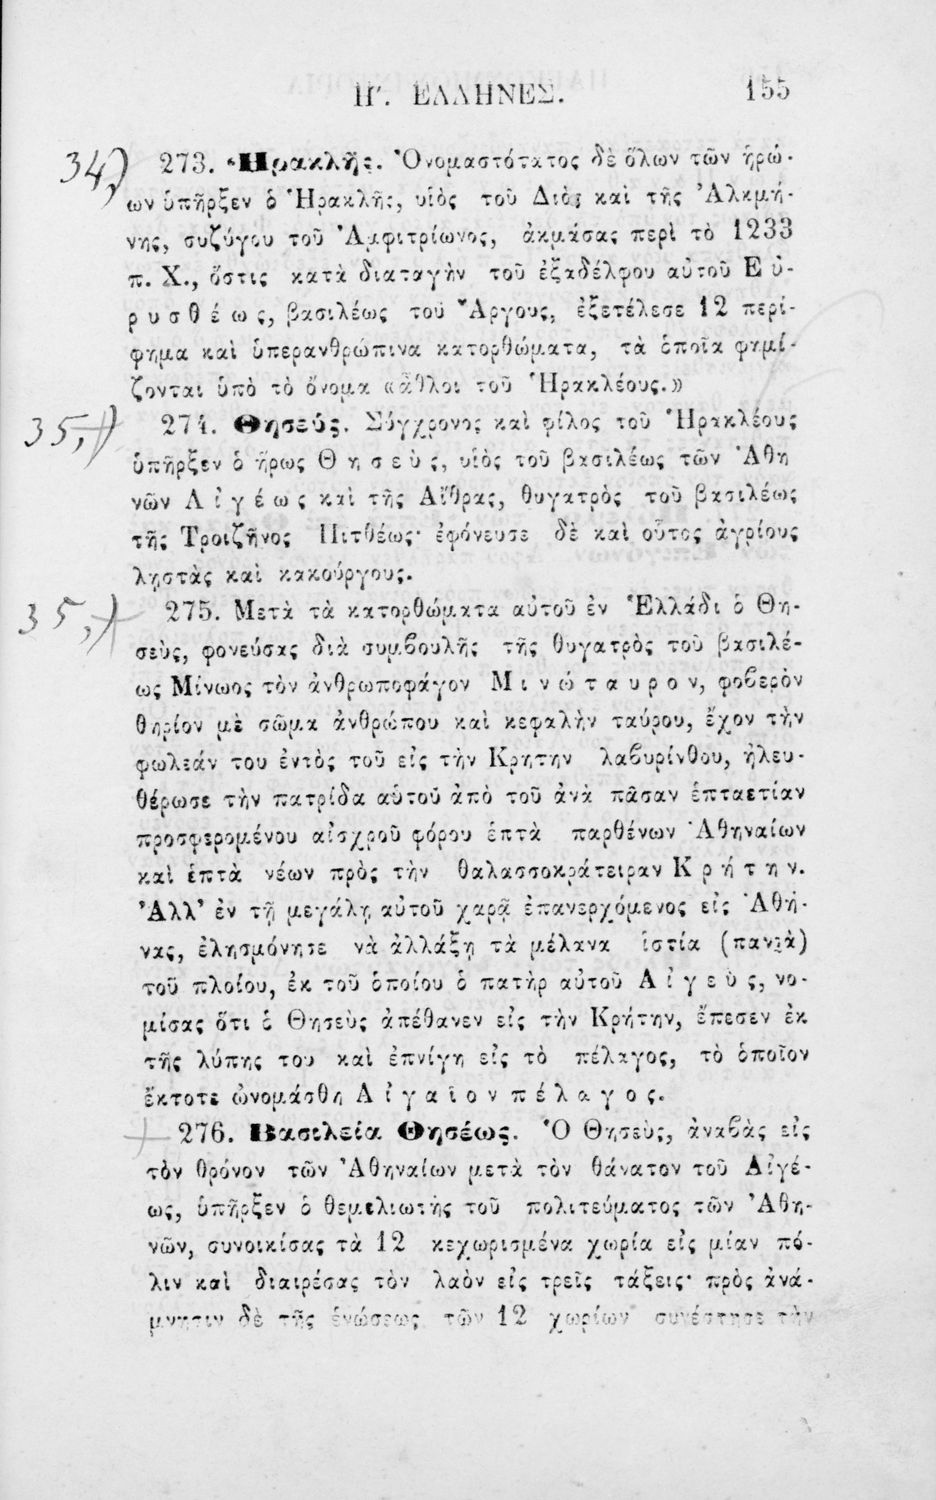 Η΄. ΕΛΛΗΝΕΣ. 155
34) 273. Ἡρακλῆς. Ὀνομαστότατος δὲ ὅλων τῶν ἡρώ-
ων ὑπῆρξεν ὁ Ἡρακλῆς, υἱὸς τοῦ Διὸς καὶ τῆς Ἀλκμή-
νης, συζύγου τοῦ Ἀμφιτρίωνος, ἀκμάσας περὶ τὸ 1233
π. Χ., ὅστις κατὰ διαταγὴν τοῦ ἐξαδέλφου αὐτοῦ Εὐ-
ρυσθέως, βασιλέως τοῦ Ἄργους, ἐξετέλεσε 12 περί-
φημα καὶ ὑπερανθρώπινα κατορθώματα, τὰ ὁποῖα φημί-
ζονται ὑπὸ τὸ ὄνομα «ἆθλοι τοῦ Ἡρακλέους.»
35,+) 274. Θησεύς. Σύγχρονος καὶ φίλος τοῦ Ἡρακλέους
ὑπῆρξεν ὁ ἥρως Θησεὺς, υἱὸς τοῦ βασιλέως τῶν Ἀθη
νῶν Αἰγέως καὶ τῆς Αἴθρας, θυγατρὸς τοῦ βασιλέως
τῆς Τροιζῆνος Πιτθέως· ἐφόνευσε δὲ καὶ οὗτος ἀγρίους
λῃστὰς καὶ κακούργους.
35,+) 275. Μετὰ τὰ κατορθώματα αὐτοῦ ἐν Ἑλλάδι ὁ Θη-
σεὺς, φονεύσας διὰ συμβουλῆς τῆς θυγατρὸς τοῦ βασιλέ-
ως Μίνωος τὸν ἀνθρωποφάγον Μινώταυρον, φοβερὸν
θηρίον μὲ σῶμα ἀνθρώπου καὶ κεφαλὴν ταύρου, ἔχον τὴν
φωλεάν του ἐντὸς τοῦ εἰς τὴν Κρητην λαβυρίνθου, ἠλευ-
θέρωσε τὴν πατρίδα αὑτοῦ ἀπὸ τοῦ ἀνὰ πᾶσαν ἑπταετίαν
προσφερομένου αἰσχροῦ φόρου ἑπτὰ παρθένων Ἀθηναίων
καὶ ἑπτὰ νέων πρὸς τὴν θαλασσοκράτειραν Κρήτην.
Ἀλλ' ἐν τῇ μεγάλῃ αὐτοῦ χαρᾷ ἐπανερχόμενος εἰς Ἀθή-
νας, ἐλησμόνησε νὰ ἀλλάξῃ τὰ μέλανα ἱστία (πανιὰ)
τοῦ πλοίου, ἐκ τοῦ ὁποίου ὁ πατὴρ αὐτοῦ Αἰγεὺς, νο-
μίσας ὅτι ὁ Θησεὺς ἀπέθανεν εἰς τὴν Κρήτην, ἔπεσεν ἐκ
τῆς λύπης του καὶ ἐπνίγη εἰς τὸ πέλαγος, τὸ ὁποῖον
ἔκτοτε ὠνομάσθη Αἰγαῖον πέλαγος.
+ 276. Βασιλεία Θησέως. Ὁ Θησεὺς, ἀναβὰς εἰς
τὸν θρόνον τῶν Ἀθηναίων μετὰ τὸν θάνατον τοῦ Αἰγέ-
ως, ὑπῆρξεν ὁ θεμελιωτὴς τοῦ πολιτεύματος τῶν Ἀθη-
νῶν, συνοικίσας τὰ 12 κεχωρισμένα χωρία εἰς μίαν πό-
λιν καὶ διαιρέσας τὸν λαὸν εἰς τρεῖς τάξεις· πρὸς ἀνά-
μνησιν δὲ τῆς ἑνώσεως τῶν 12 χωρίων συνέστησε τὴν